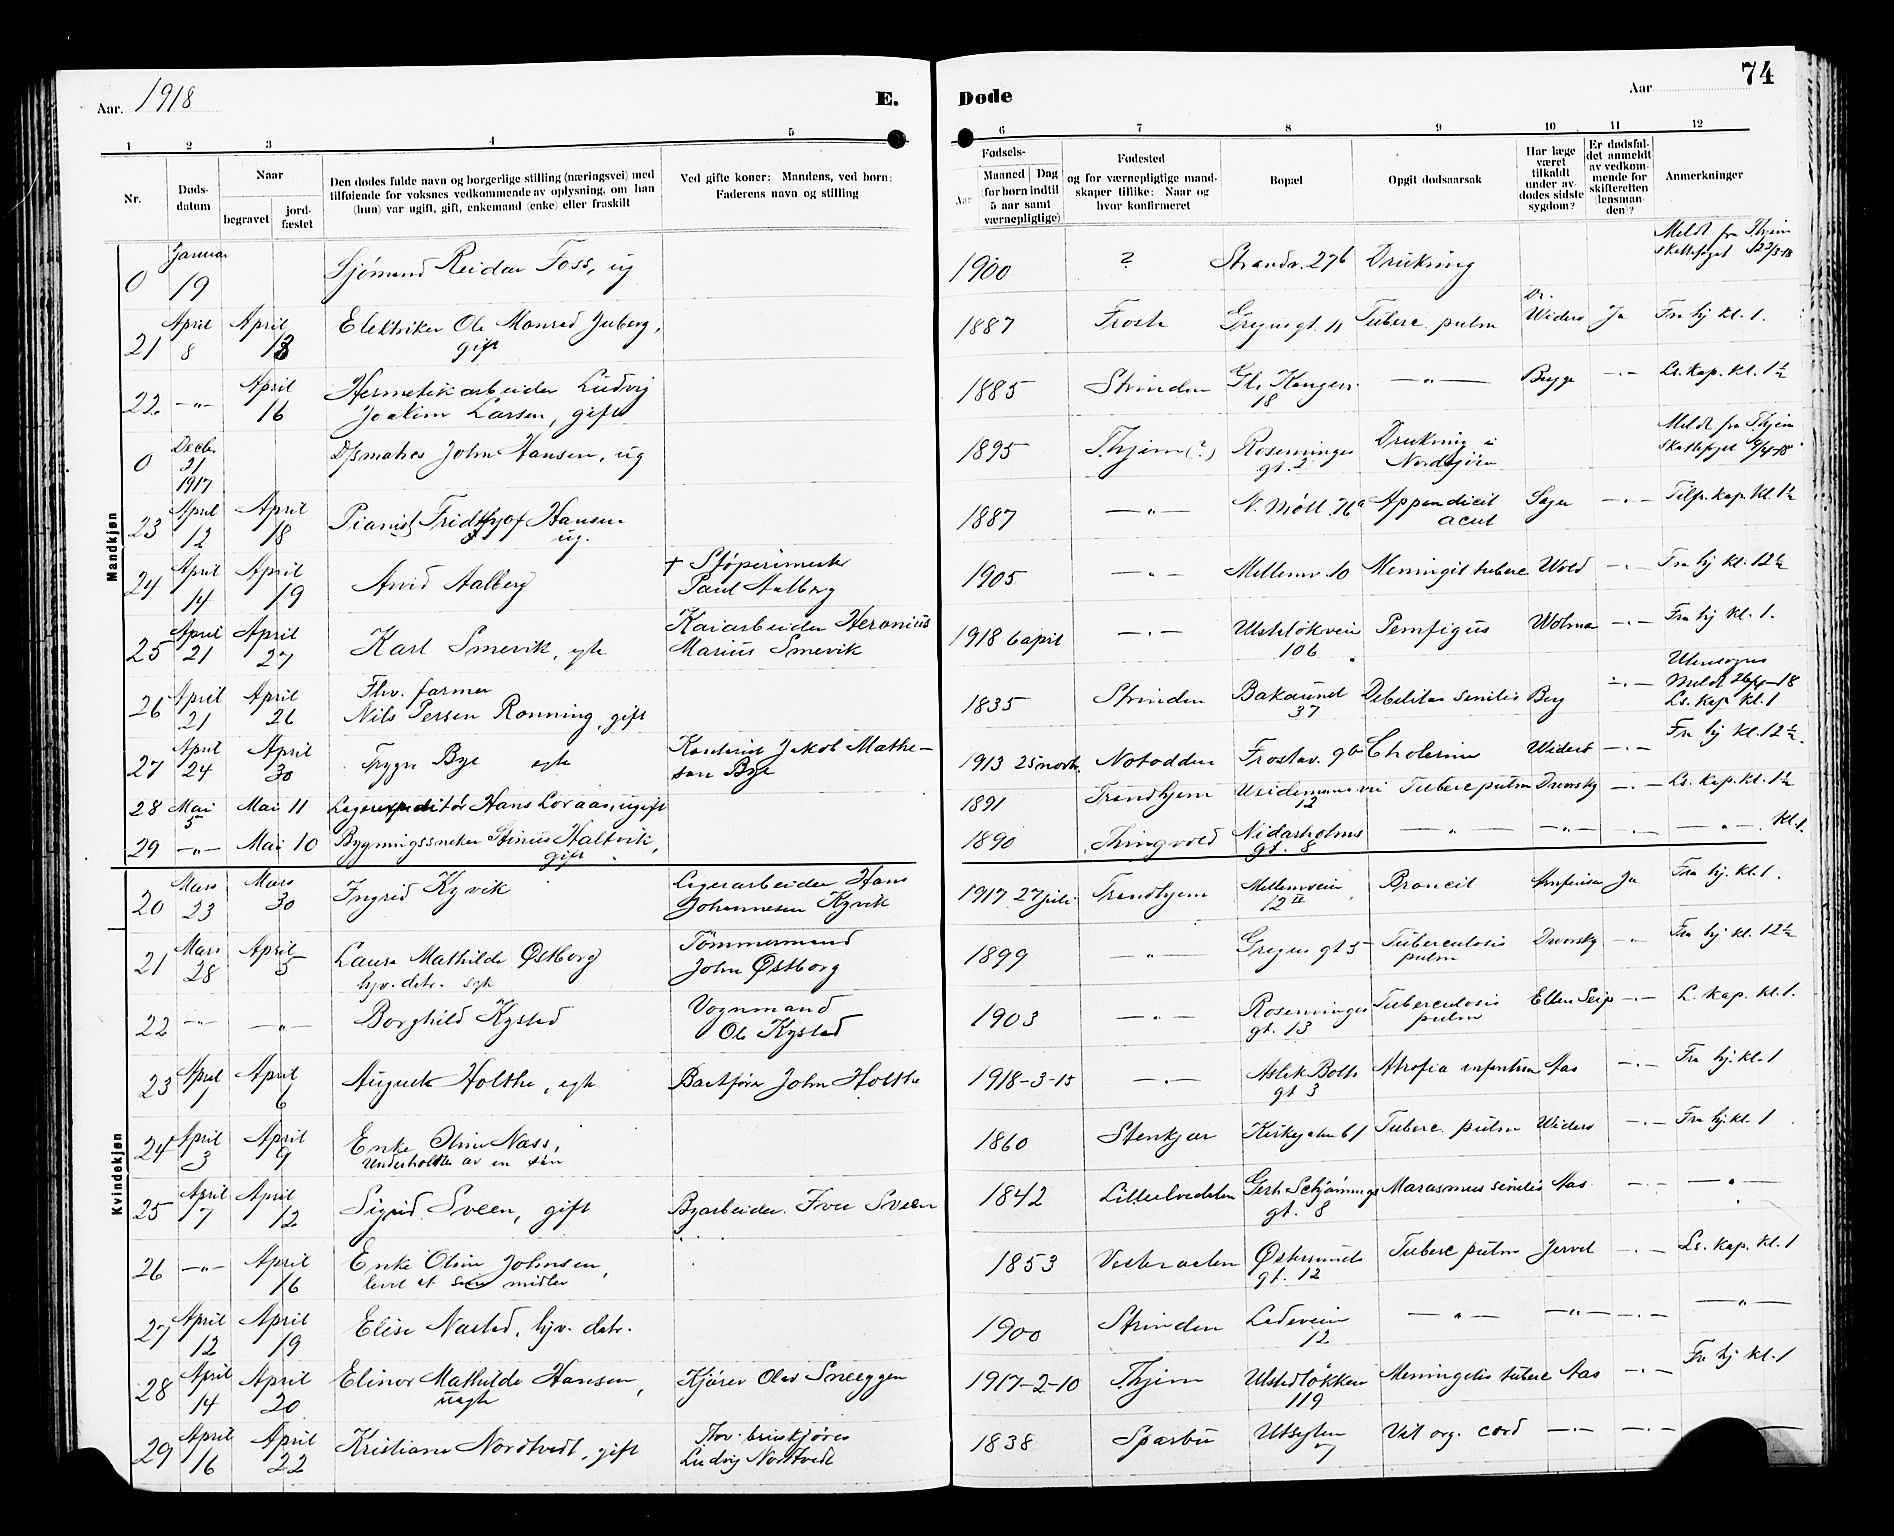 Aar. 1918
E.
Døde
Aar
74
1
2
3
4
5
6
7
8
9
10
11
12
Nr.
Døds-
datum
Naar
begravet
jord-
fæstet
Den dødes fulde navn og borgerlige stilling (næringsvei) med
tilføiende for voksnes vedkommende av oplysning, om han
(hun) var ugift, gift, enkemand (enke) eller fraskilt
Ved gifte koner: Mandens, ved børn:
Faderens navn og stilling
Fødsels-
Aar
Maaned
Dag
(for børn indtil
5 aar samt
værnepligtige)
Fødested
og for værnepligtige mand-
skaper tillike: Naar og
hvor konfirmeret
Bopæl
Opgit dødsaarsak
Har læge
været
tilkaldt
under av-
dødes sidste
sygdom?
Er dødsfal-
det anmeldt
av vedkom-
mende for
skifteretten
(lensman-
den)?
Anmerkninger
Mandkjøn
0 Januar 19 Sjømand Reidar Foss, ug 1900 ? Strandv. 27b Drukning Meldt fra Thjem
skattefoget
21 April 8 April Elektriker Ole Manred Juberg,
gift 1887 Frosta gt. 11 Tuberc. pulm Dr. Widerø Ja Fra hj kl. 1.
22 —"— April 16 Hermetikarbeider Ludvig
Joakim Larsen, gift 1885 Strinden Gl. Kongev.
18 —"— Brygge —"— Ls. kap. kl. 1½
0 Decbr 21
1917 John Hansen, ug 1895 Thjem (?) Rosenvinges
gt. 2 Drukning i
Nordsjøen Meldt fra Thjem
23 April 12 April 18 Pianist Fridthjof Hansen
ug. 1887 —"— N. Møll. 76a Appendicit
acut —"— Tilfr. kap. kl 1½
24 April 14 April 19 Arvid Aalberg + Støperimester
Paul Aalberg 1905 —"— Mellemv. 10 Meningit tuberc Wold —"— Fra hj kl. 12½
25 April 21 April 27 Karl Smevik, egte Kaiarbeider Heronius
Marius Smevik 1918 6 april —"— Ulstadløkvein
106 Pemfigus Wolmar —"— Fra hj kl. 1.
26 April 21 April 26 Fhv. farmer
Nils Persen Rønning, gift 1835 Strinden Baklandet
37 Debilitas senilis Berg —"— Utensogns
Meldt 26/4-18
Ls. kap kl. 1
27 April 24 April 30 Trygve Bye egte Kontorist Jakob Mathe-
sen Bye 1913 25 novb. Notodden Frostav. 9b Cholerine Widerø —"— Fra hj kl. 12½.
28 Mai 5 Mai 11 Lagerexpeditør Hans Loraas, ugift 1891 Trondhjem Weidemannsvei
12 Tuberc pulm Dunsky —"— Ls. kap. kl. 1½
29 —"— Mai 10 Bygningssnekker Stinius Haltvik,
gift 1890 Thingvold Nidarholms
gt. 8 —"— —"— —"— —"— kl. 1.
Kvindekjøn
20 Mars 23 Mars 30 Ingrid Kyvik Lagerarbeider Hans
Johannesen Kyvik 1917 27 juli Trondhjem Mellemvein
12 II Broncit Ja Fra hj. kl. 1.
21 Mars 28 April 5 Laura Mathilde Østborg
hjv. datr. egte Tømmermand
John Østborg 1899 —"— gt 5 Tuberculosis
pulm Dunsky —"— Fra hj kl. 12½
22 —"— —"— Borghild Kystad Vognmand
Ole Kystad 1903 —"— Rosenvinges
gt. 13 Tuberculosis
pulm Ellen Seip —"— L. kap. kl. 1.
23 April 1 April 6 Auguste Holthe, egte Baatfører John Holthe 1918-3-15 —"— Aslak Bolts
gt 3 Atrofia infantum Aas —"— Fra hj. kl. 1
24 April 3 April 9 Enke Oline Næss,
Underholdtes av en søn 1860 Stenkjær Kirkegaten 61 Tuberc. pulm Widerø —"— Fra hj. kl. 1
25 April 7 April 12 Sigrid Sveen, gift Byarbeider Iver Sveen 1842 Lilleelvedalen Gerh Schjønnings
gt. 8 Marasmus senilis Aas —"— —"—
26 —"— April 16 Enke Oline Johnsen,
levet af sine midler 1853 Vesteraalen Østersunds
gt. 12 Tuberc pulm Jervel —"— Ls. kap. kl. 1
27 April 12 April 19 Elise Nastad, hjv. datr. 1900 Strinden Ladeveien
12 —"— —"— —"— —"—
28 April 14 April 20 Elinor Mathilde Hansen,
uegte Kjører Olav Sneeggen 1917-2-10 Thjem Ulstadløkken
119 Meningitis tuberc Aas —"— Fra hj kl. 1
29 April 16 April 22 Kristiane Nordtvedt, gift Fhv. brisk­jører
Ludvig Nordtvedt 1838 Sparbu Utsigten
7 Vit org. cord —"— —"—